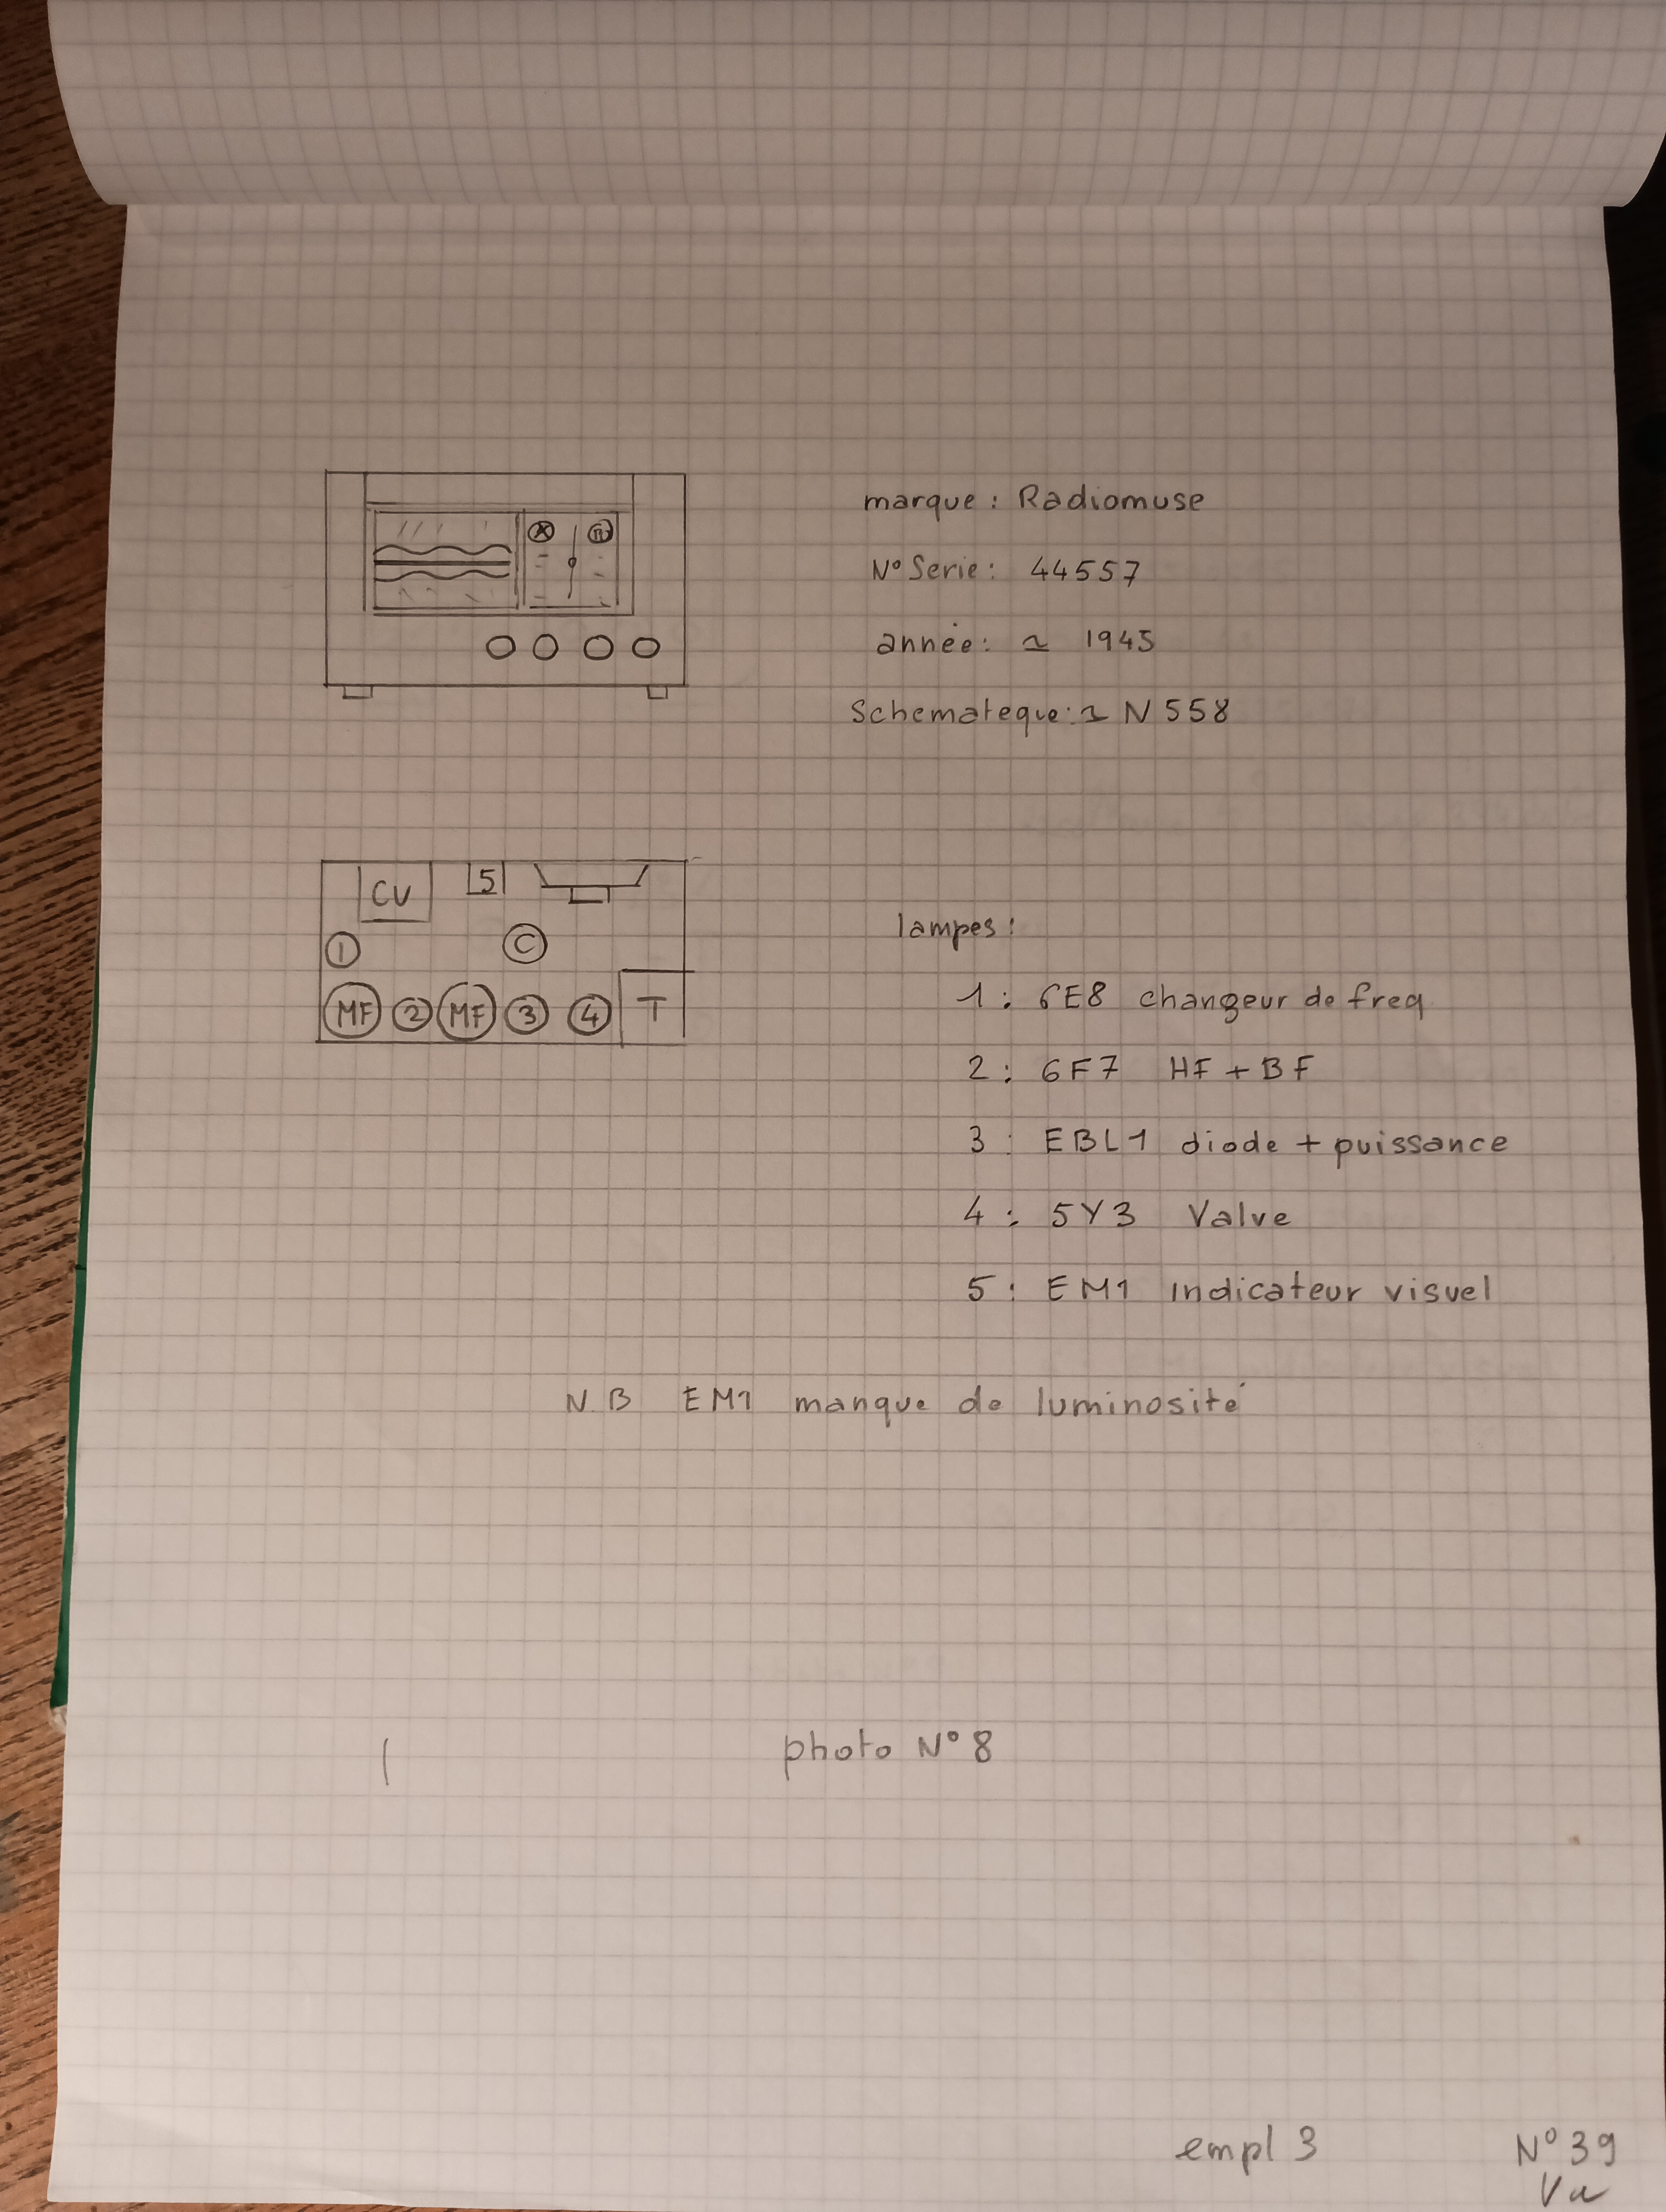 marque : Radiomuse
N° Serie : 44557
année : ≃ 1945
Schemateque : ≃ N 558
CV 5
1 C
MF 2 MF 3 4 T
lampes :
1 : 6E8 changeur de freq
2 : 6F7 HF + BF
3 : EBL1 diode + puissance
4 : 5Y3 Valve
5 : EM1 indicateur visuel
N.B EM1 manque de luminosité
photo N° 8
empl 3
N° 39
Vu